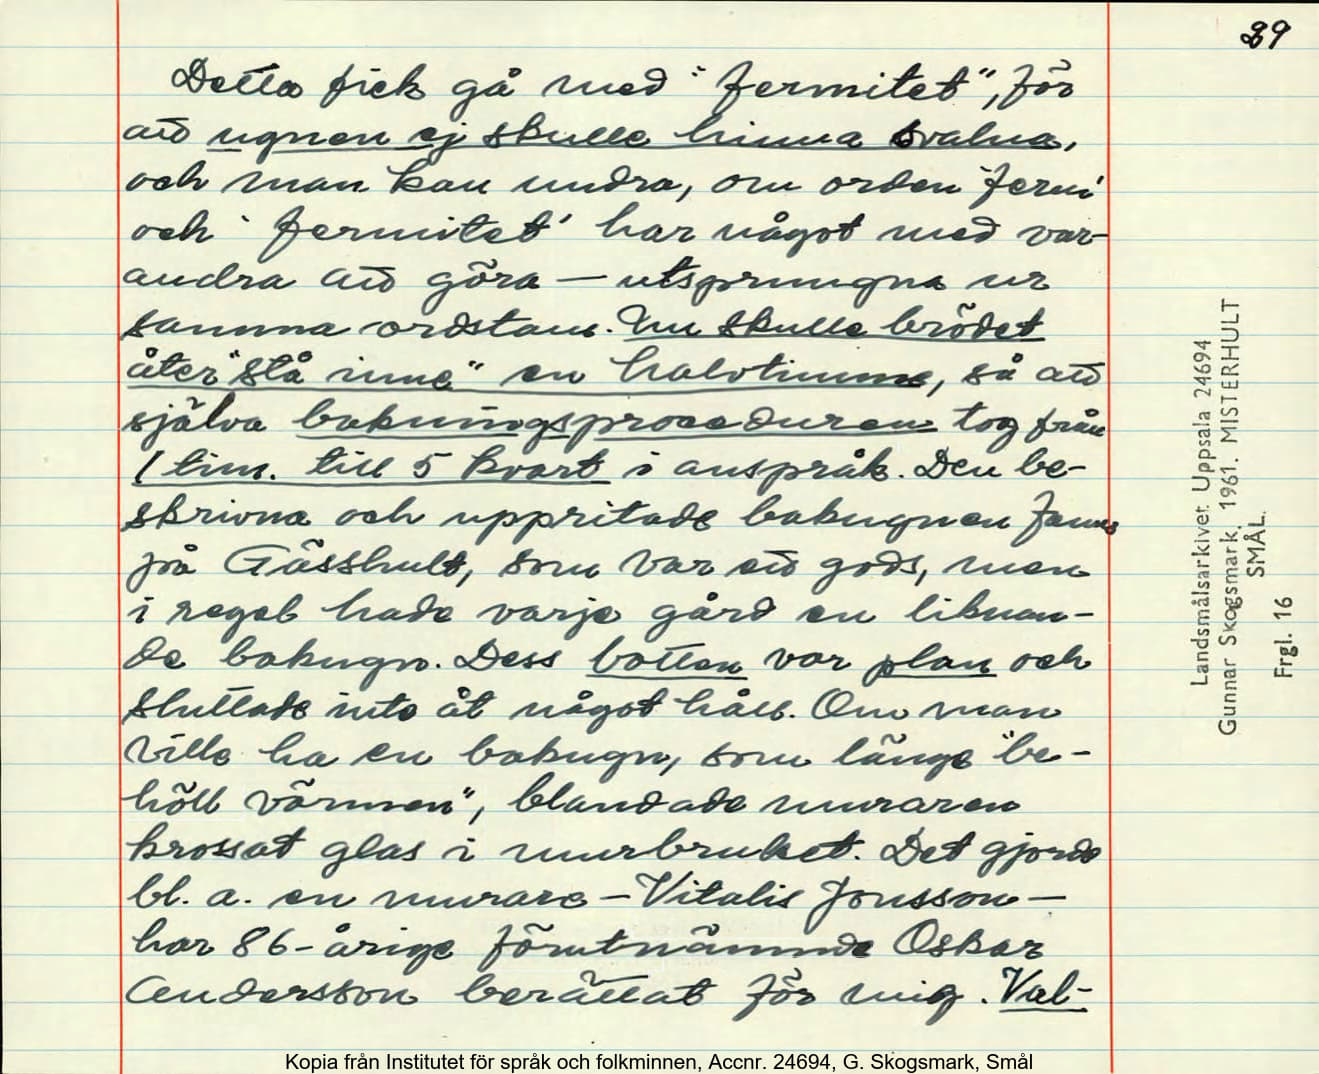 39
Detta fick gå med "fermitet", för
att ugnen ej skulle hinna svalna,
och man kan undra, om orden 'ferm'
och 'fermitet' har något med var-
andra att göra — utsprungna ur
samma ordstam. Nu skulle brödet
åter "stå inne" en halvtimme, så att
själva bakningsproceduren tog från
1 tim. till 5 kvart i anspråk. Den be-
skrivna och uppritade bakugnen fanns
på Gässhult, som var ett gods, men
i regel hade varje gård en liknan-
de bakugn. Dess botten var plan och
sluttade inte åt något håll. Om man
ville ha en bakugn, som länge "be-
höll värmen", blandade muraren
krossat glas i murbruket. Det gjorde
bl. a. en murare – Vitalis Jonsson –
har 86-årige förutnämnde Oskar
Andersson berättat för mig. Val-
Landsmålsarkivet Uppsala 24694
Gunnar Skogsmark. 1961. MISTERHULT
SMÅL.
Frgl. 16
Kopia från Institutet för språk och folkminnen, Accnr. 24694, G. Skogsmark, Smål